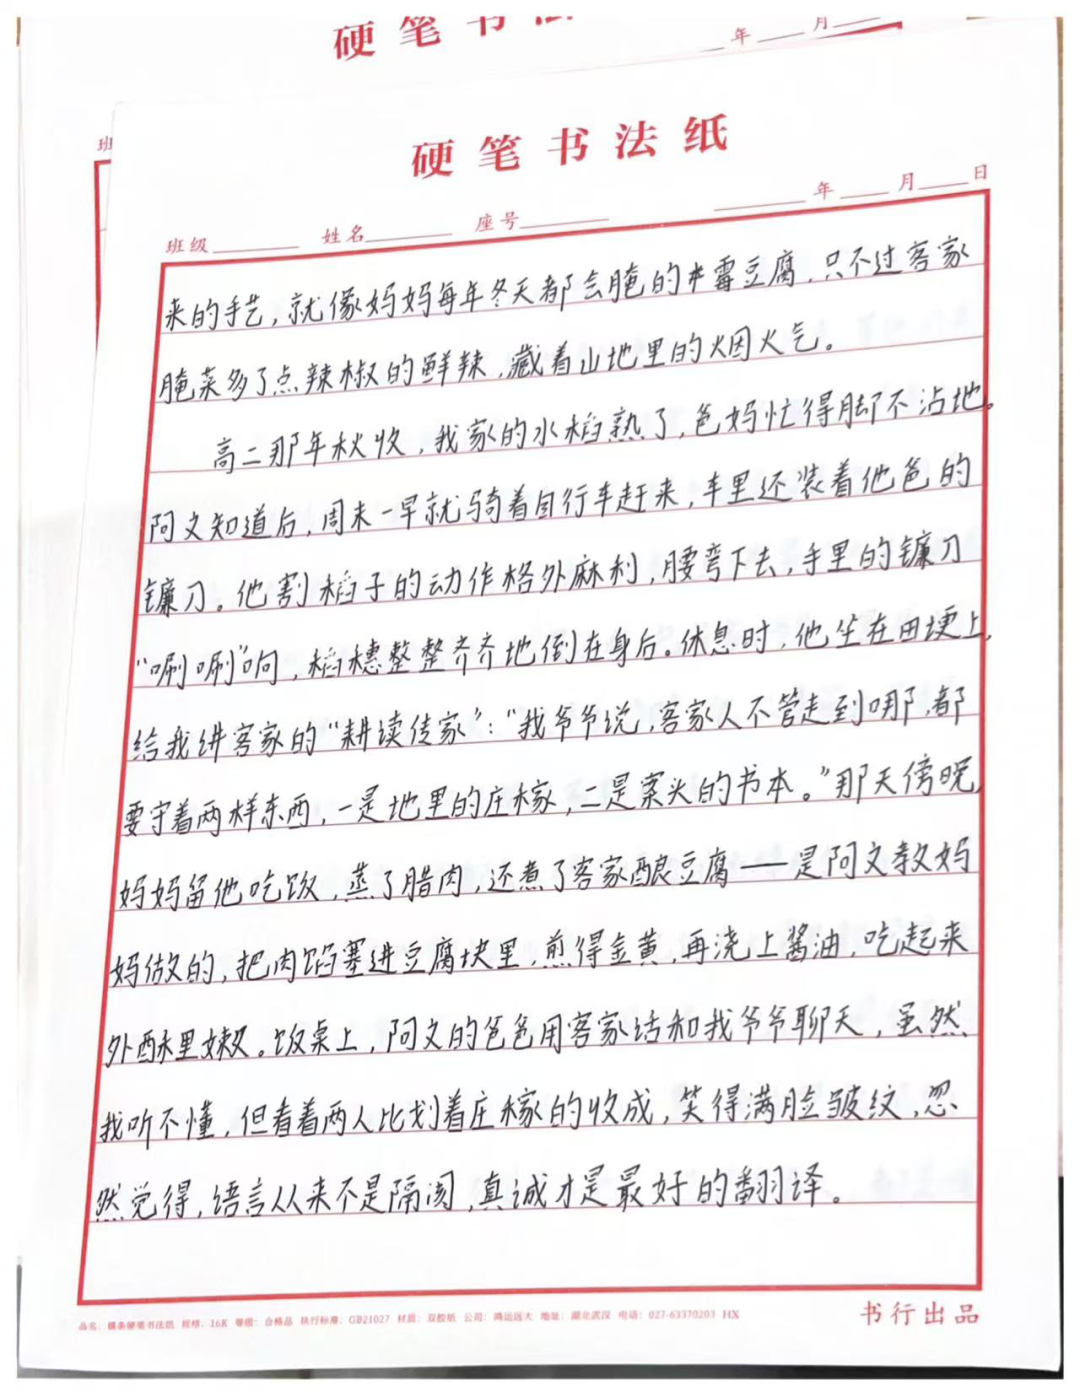 硬笔书法
年 月
班
硬笔书法纸
班级 姓名 座号 年 月 日
来的手艺,就像妈妈每年冬天都会腌的霉豆腐,只不过客家
腌菜多了点辣椒的鲜辣,藏着山地里的烟火气。
高二那年秋收,我家的水稻熟了,爸妈忙得脚不沾地。
阿文知道后,周末一早就骑着自行车赶来,车里还装着他爸的
镰刀。他割稻子的动作格外麻利,腰弯下去,手里的镰刀
“唰唰”响,稻穗整整齐齐地倒在身后。休息时,他坐在田埂上,
给我讲客家的“耕读传家”:“我爷爷说,客家人不管走到哪,都
要守着两样东西,一是地里的庄稼,二是案头的书本。”那天傍晚,
妈妈留他吃饭,蒸了腊肉,还煮了客家酿豆腐——是阿文教妈
妈做的,把肉馅塞进豆腐块里,煎得金黄,再浇上酱油,吃起来
外酥里嫩。饭桌上,阿文的爸爸用客家话和我爷爷聊天,虽然
我听不懂,但看着两人比划着庄稼的收成,笑得满脸皱纹,忽
然觉得,语言从来不是隔阂,真诚才是最好的翻译。
品名:横条硬笔书法纸 规格:16K 等级:合格品 执行标准:GB21027 材质:双胶纸 公司:腾运远大 地址:湖北武汉 电话:027-63370203 HX
书行出品